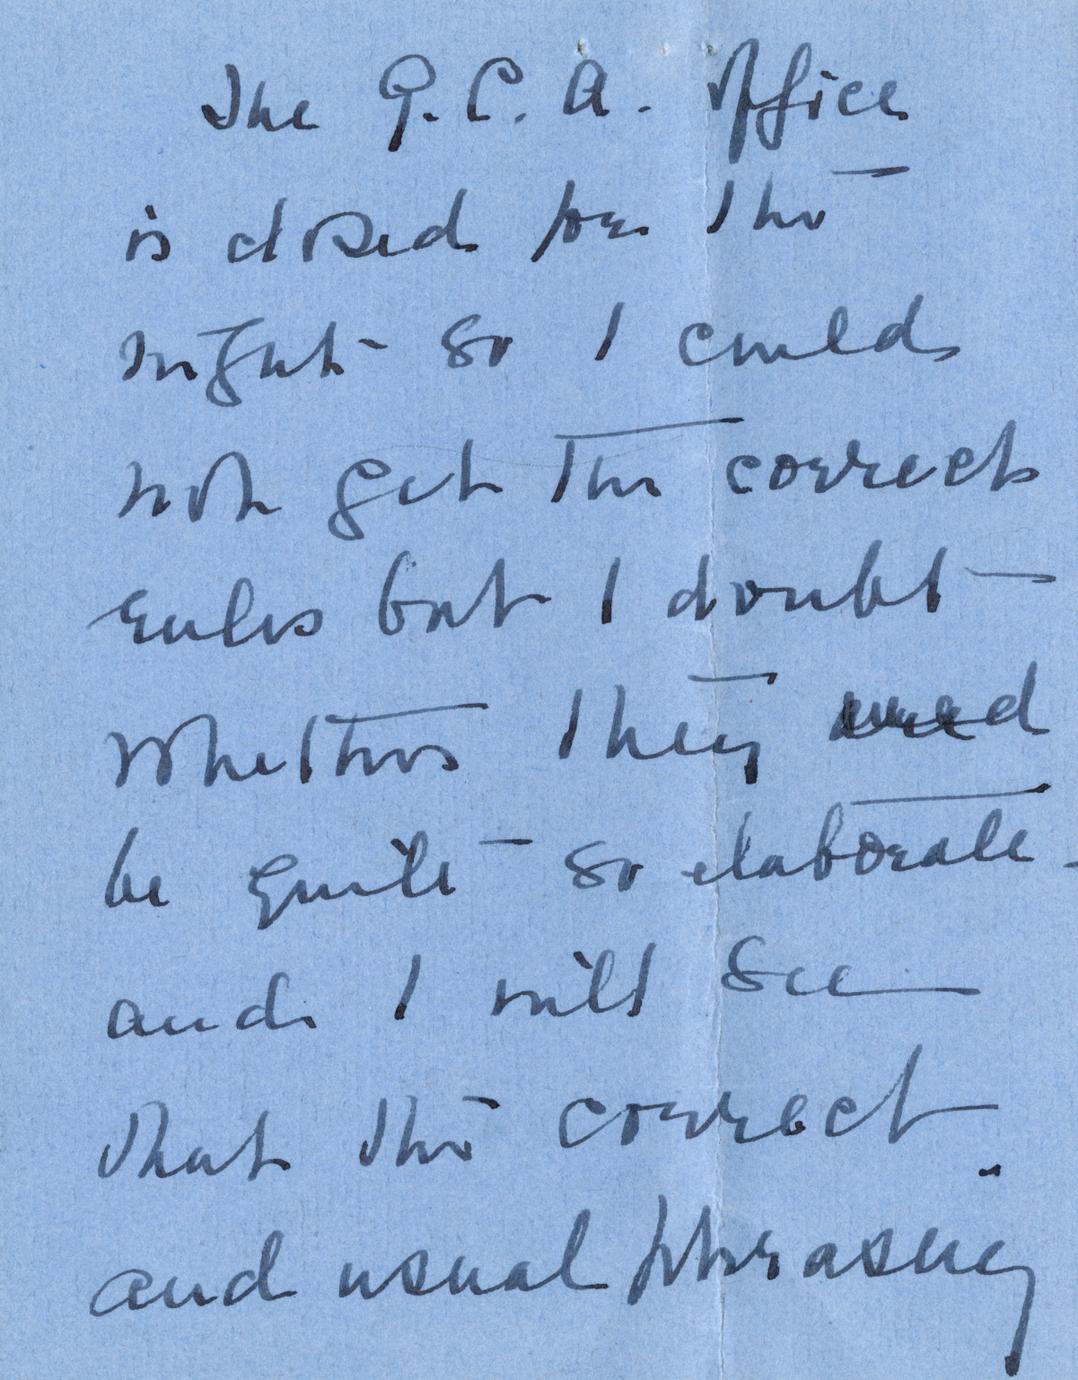 The G.C.A. Office
is closed for the
night so I could
not get the correct
rules but I doubt
whether they need
be quite so elaborate -
and I will see
that the correct
and usual phrasing